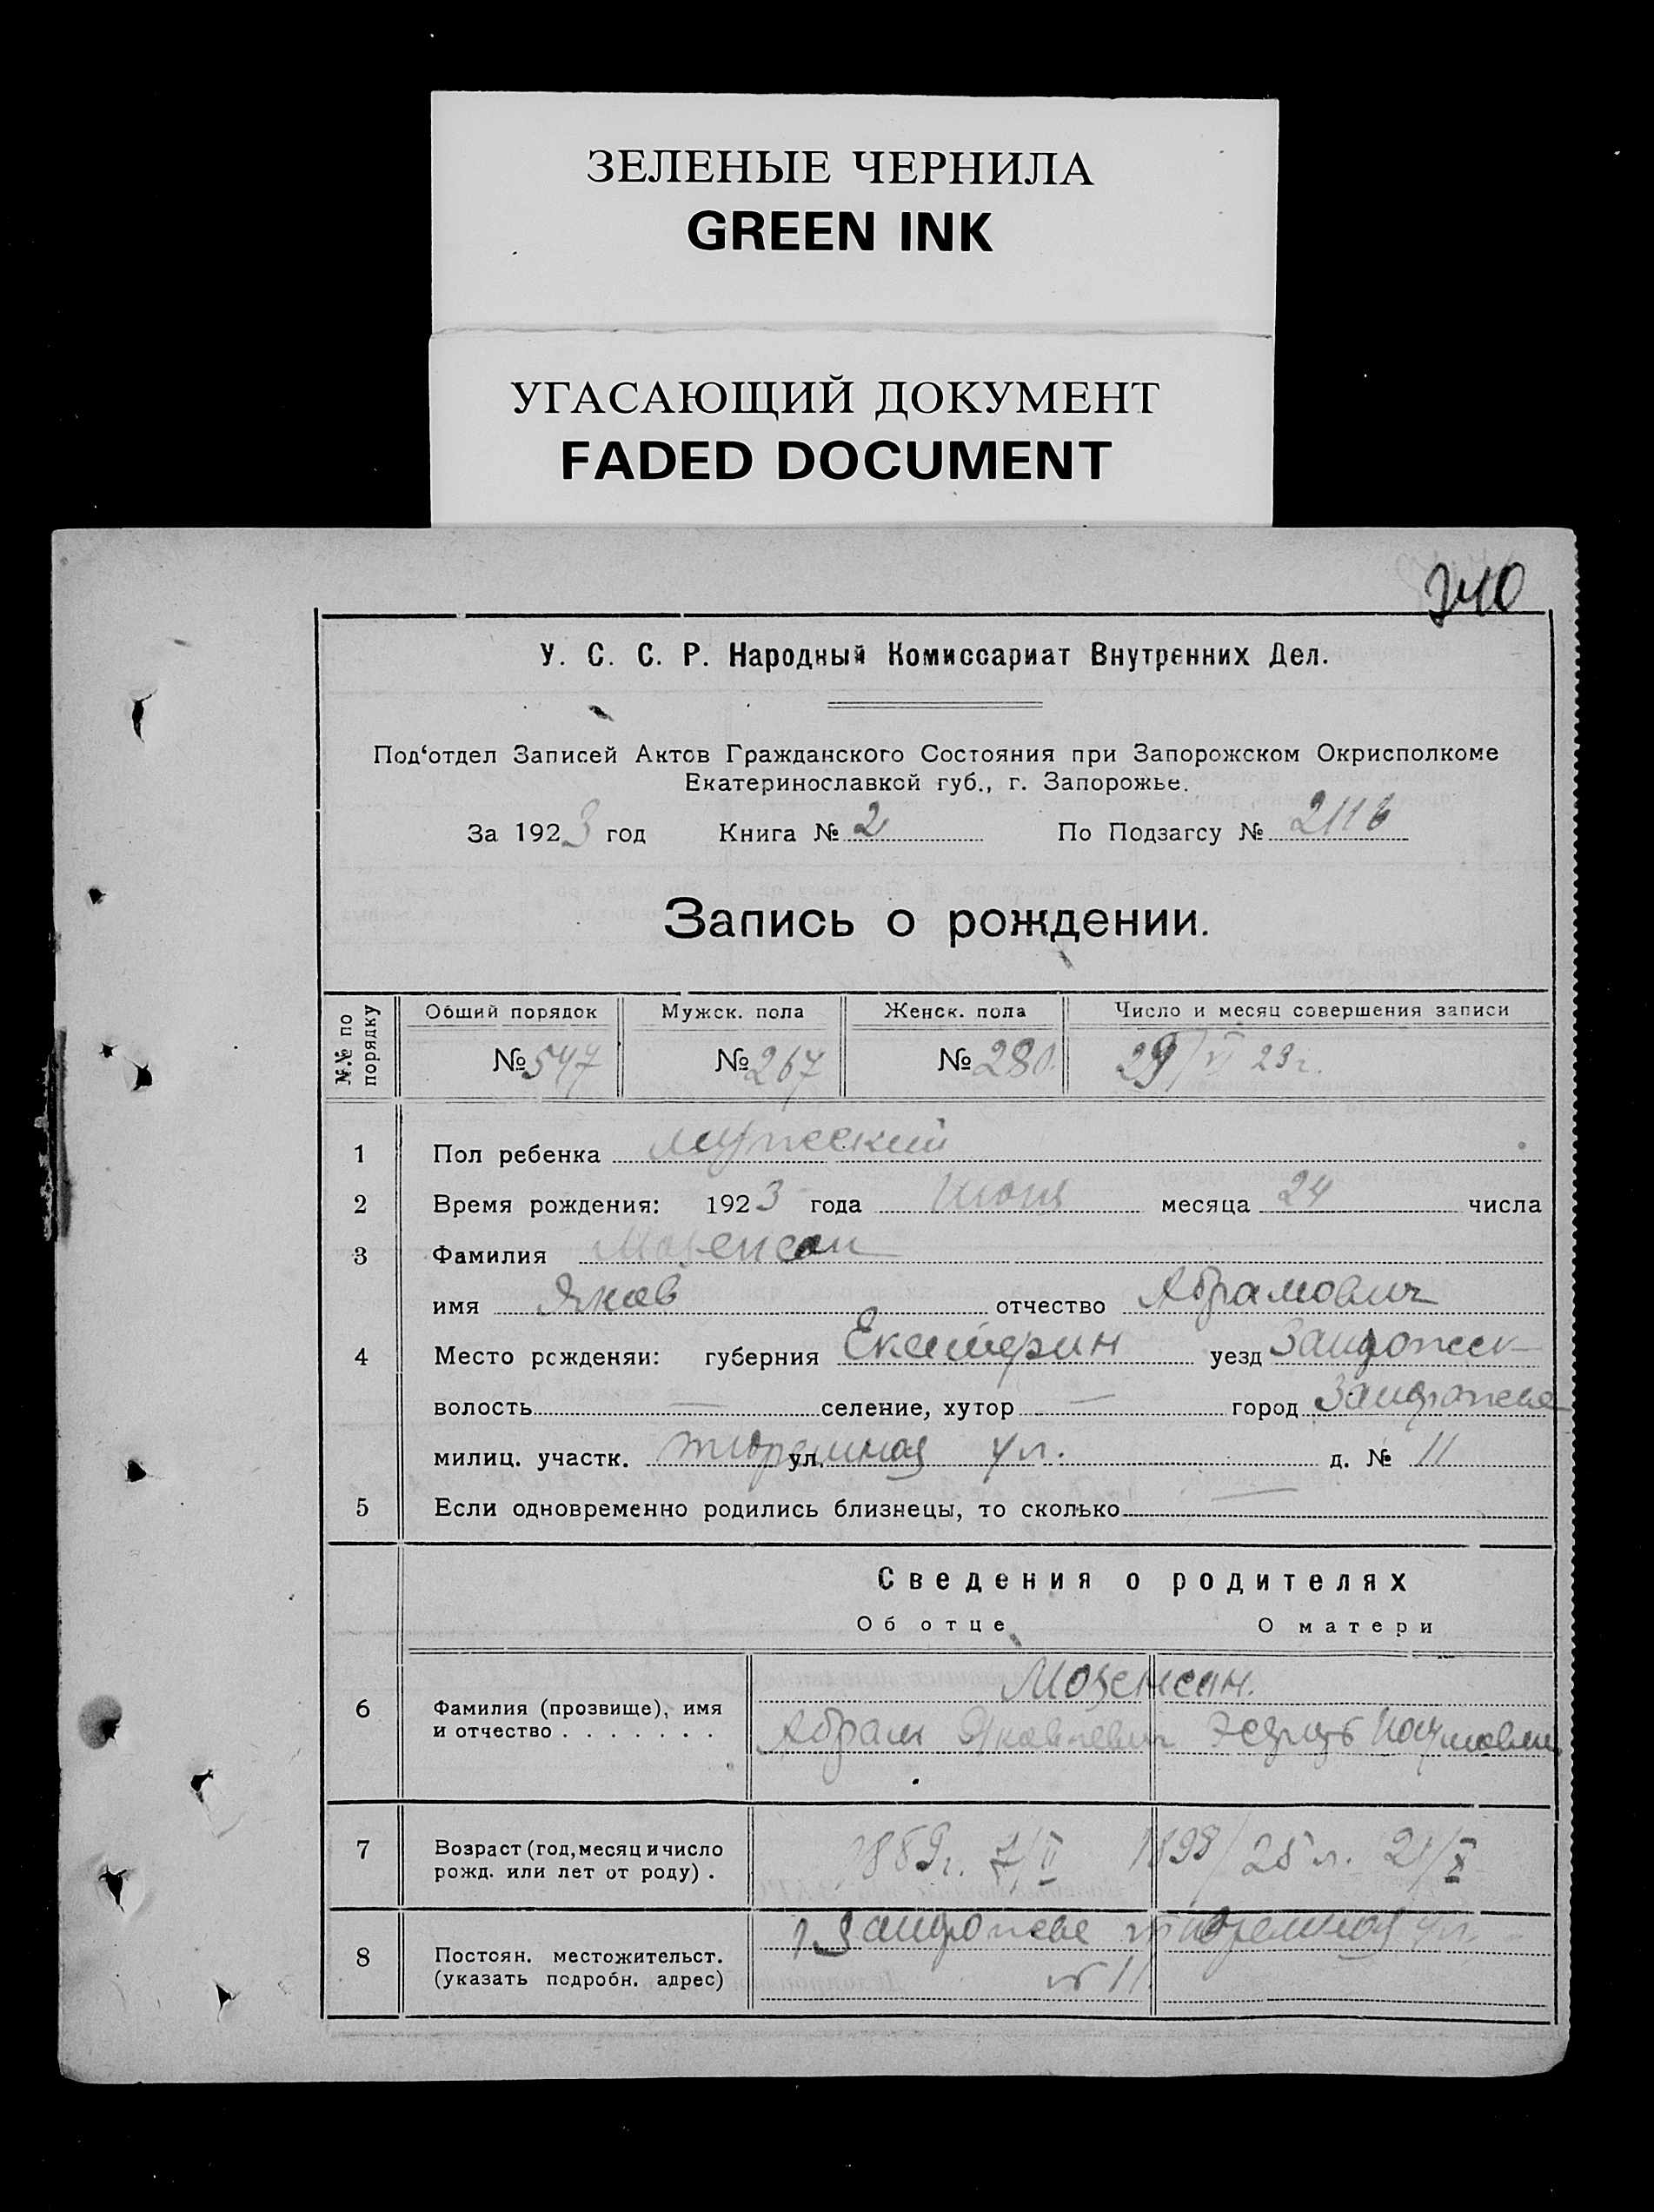 ЗЕЛЕНЫЕ ЧЕРНИЛА
GREEN INK
УГАСАЮЩИЙ ДОКУМЕНТ
FADED DOCUMENT
240
У. С. С. Р. Народный Комиссариат Внутренних Дел.
Под‘отдел Записей Актов Гражданского Состояния при Запорожском Окрисполкоме
Екатеринославкой губ., г. Запорожье.
За 1923 год Книга № 2 По Подзагсу № 2116
Запись о рождении.
№№ по порядку Общий порядок Мужск. пола Женск. пола Число и месяц совершения записи
№ 547 № 267 № 280. 29/VI 23 г.
1 Пол ребенка мужеский
2 Время рождения: 1923 года Июня месяца 24 числа
3 Фамилия
имя Яков отчество Абрамович
4 Место рожденяи: губерния Екатерин уезд Запорожск
волость — селение, хутор — город Запорожье
милиц. участк. тюремная ул. ул. д. № 11
5 Если одновременно родились близнецы, то сколько —
Сведения о родителях
Об отце О матери
6 Фамилия (прозвище), имя
и отчество . . . . . . .
Абрам Яковлевич Наумовн
7 Возраст (год, месяц и число
рожд. или лет от роду) .
1889 г. 7/II 1898/25 л. 21/X
8 Постоян. местожительст.
(указать подробн. адрес)
г. Запорожье тюремная ул.
№ 11